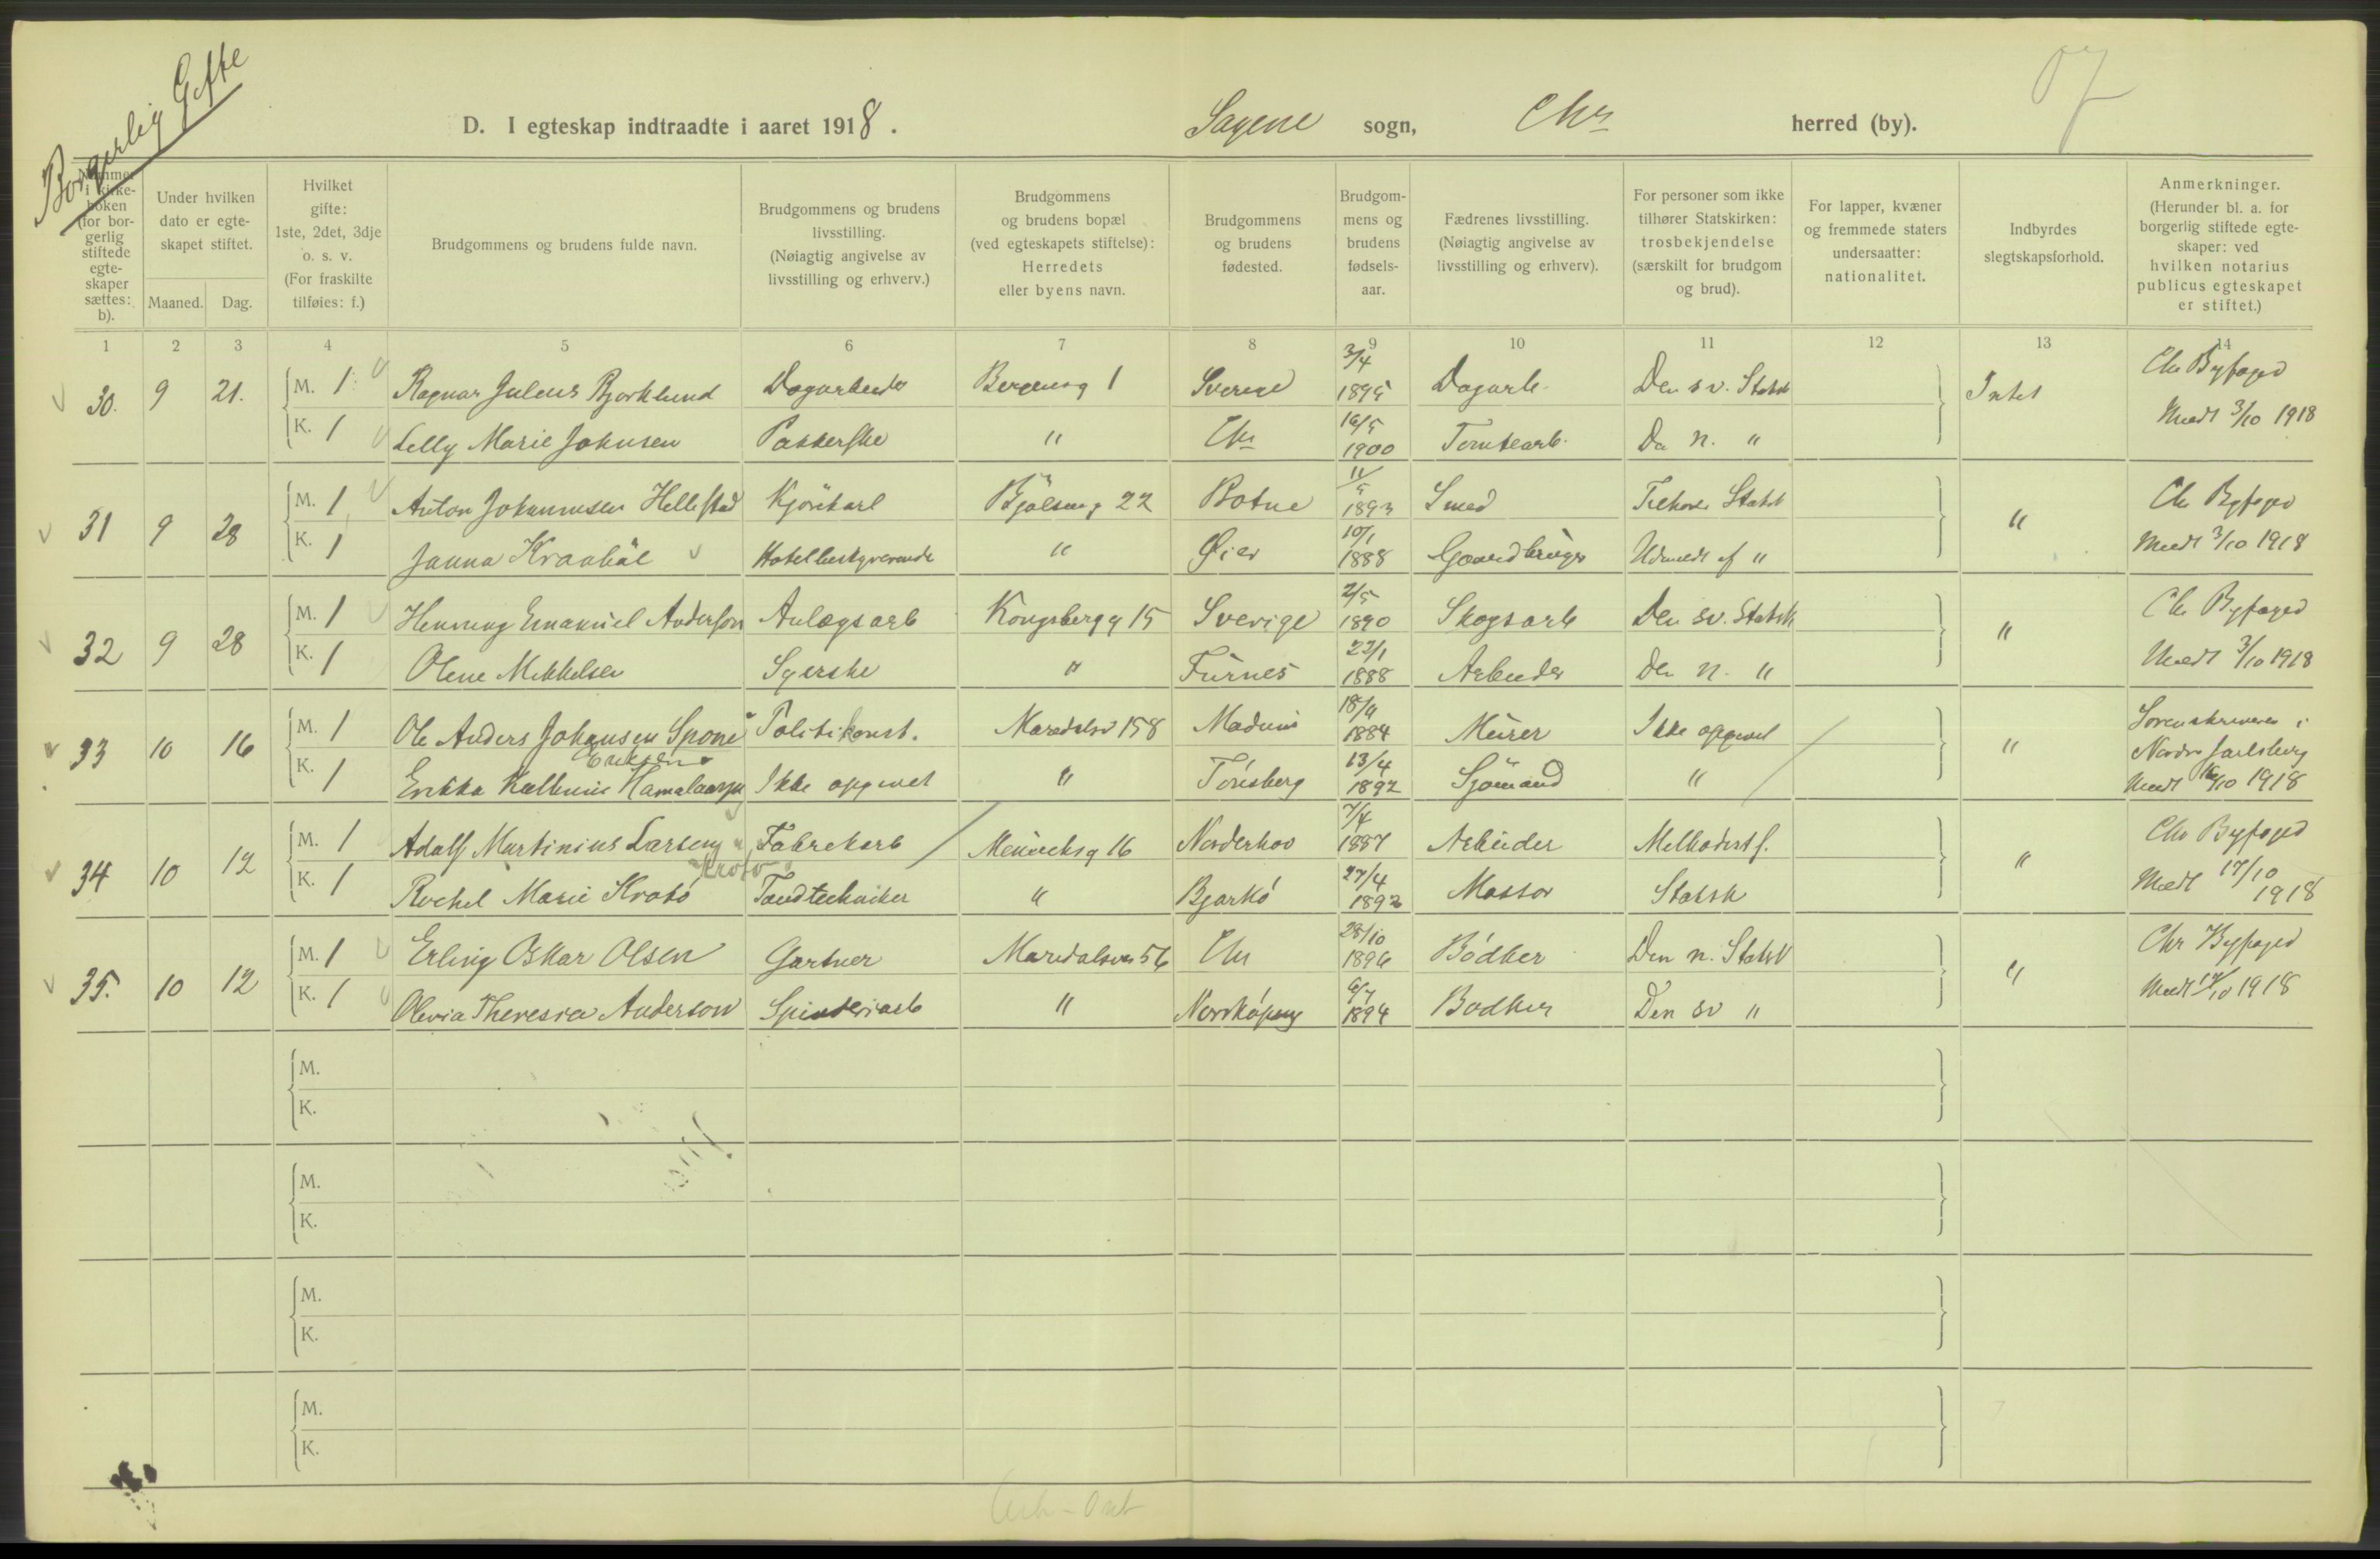 Borgerlig Gifte
D. I egteskap indtraadte i aaret 1918. Sagene sogn, Chr herred (by).
Nummer i kirke-boken (for bor-gerlig stiftede egte-skaper sættes: b).
Under hvilken dato er egte-skapet stiftet.
Maaned. Dag.
Hvilket gifte: 1ste, 2det, 3dje o. s. v. (For fraskilte tilføies: f.)
Brudgommens og brudens fulde navn.
Brudgommens og brudens livsstilling. (Nøiagtig angivelse av livsstilling og erhverv.)
Brudgommens og brudens bopæl (ved egteskapets stiftelse): Herredets eller byens navn.
Brudgommens og brudens fødested.
Brudgom-mens og brudens fødsels-aar.
Fædrenes livsstilling. (Nøiagtig angivelse av livsstilling og erhverv).
For personer som ikke tilhører Statskirken: trosbekjendelse (særskilt for brudgom og brud).
For lapper, kvæner og fremmede staters undersaatter: nationalitet.
Indbyrdes slegtskapsforhold.
Anmerkninger. (Herunder bl. a. for borgerlig stiftede egte-skaper: ved hvilken notarius publicus egteskapet er stiftet.)
1 2 3 4 5 6 7 8 9 10 11 12 13 14
30. 9 21. M. 1 Ragnar Julius Bjorklund Dagarbeider Bergensg 1 Sverige 3/4 1895 Dagarb. Den sv. Statsk Intet Chr Byfoged
K. 1 Lilly Marie Johnsen Pakkerske " Chr 16/5 1900 Tomtearb. Den n. " Medt 3/10 1918
31 9 28 M. 1 Anton Johannesen Hellestad Kjörekarl Bjölseng 22 Botne 11/5 1893 Smed Tilhører Statsk " Chr Byfoged
K. 1 Janna Kraaböl Hotelbestyrerinde " Øier 10/1 1888 Gaardbruger Udmeldt af " Medt 3/10 1918
32 9 28 M. 1 Henning Emanuel Anderson Anlægsarb Kongsbergg 15 Sverige 2/5 1890 Skogsarb Den sv. Statsk " Chr Byfoged
K. 1 Olene Mikkelsen Syerske " Furnes 23/1 1888 Arbeider Den n. " Medt 3/10 1918
33 10 16 M. 1 Ole Anders Johansen Spone Politikonst. Maridalsv 158 Modum 18/4 1884 Murer Ikke opgivet " Sorenskriveren i
Eriksen Nordre Jarlsberg
K. 1 Erikka Ikke opgivet " Tönsberg 13/4 1892 Sjömand " Medt 16/10 1918
34 10 12 M. 1 Adolf Martinius Larsen Fabrikarb 16 Norderhov 7/4 1887 Arbeider Methodistf. " Chr Byfoged
Krotö
K. 1 Rachel Marie Krotö Tandtekniker " Bjarkö 27/4 1892 Statsk Medt 17/10 1918
35. 10 12 M. 1 Erling Oskar Olsen Gartner Maridalsvei 56 Chr 28/10 1896 Bödker Den n. Statsk " Chr Byfoged
K. 1 Olivia Theresia Anderson Spinderiarb " Norrköping 6/7 1894 Bödker Den sv " Medt 17/10 1918
M.
K.
M.
K.
M.
K.
M.
K.